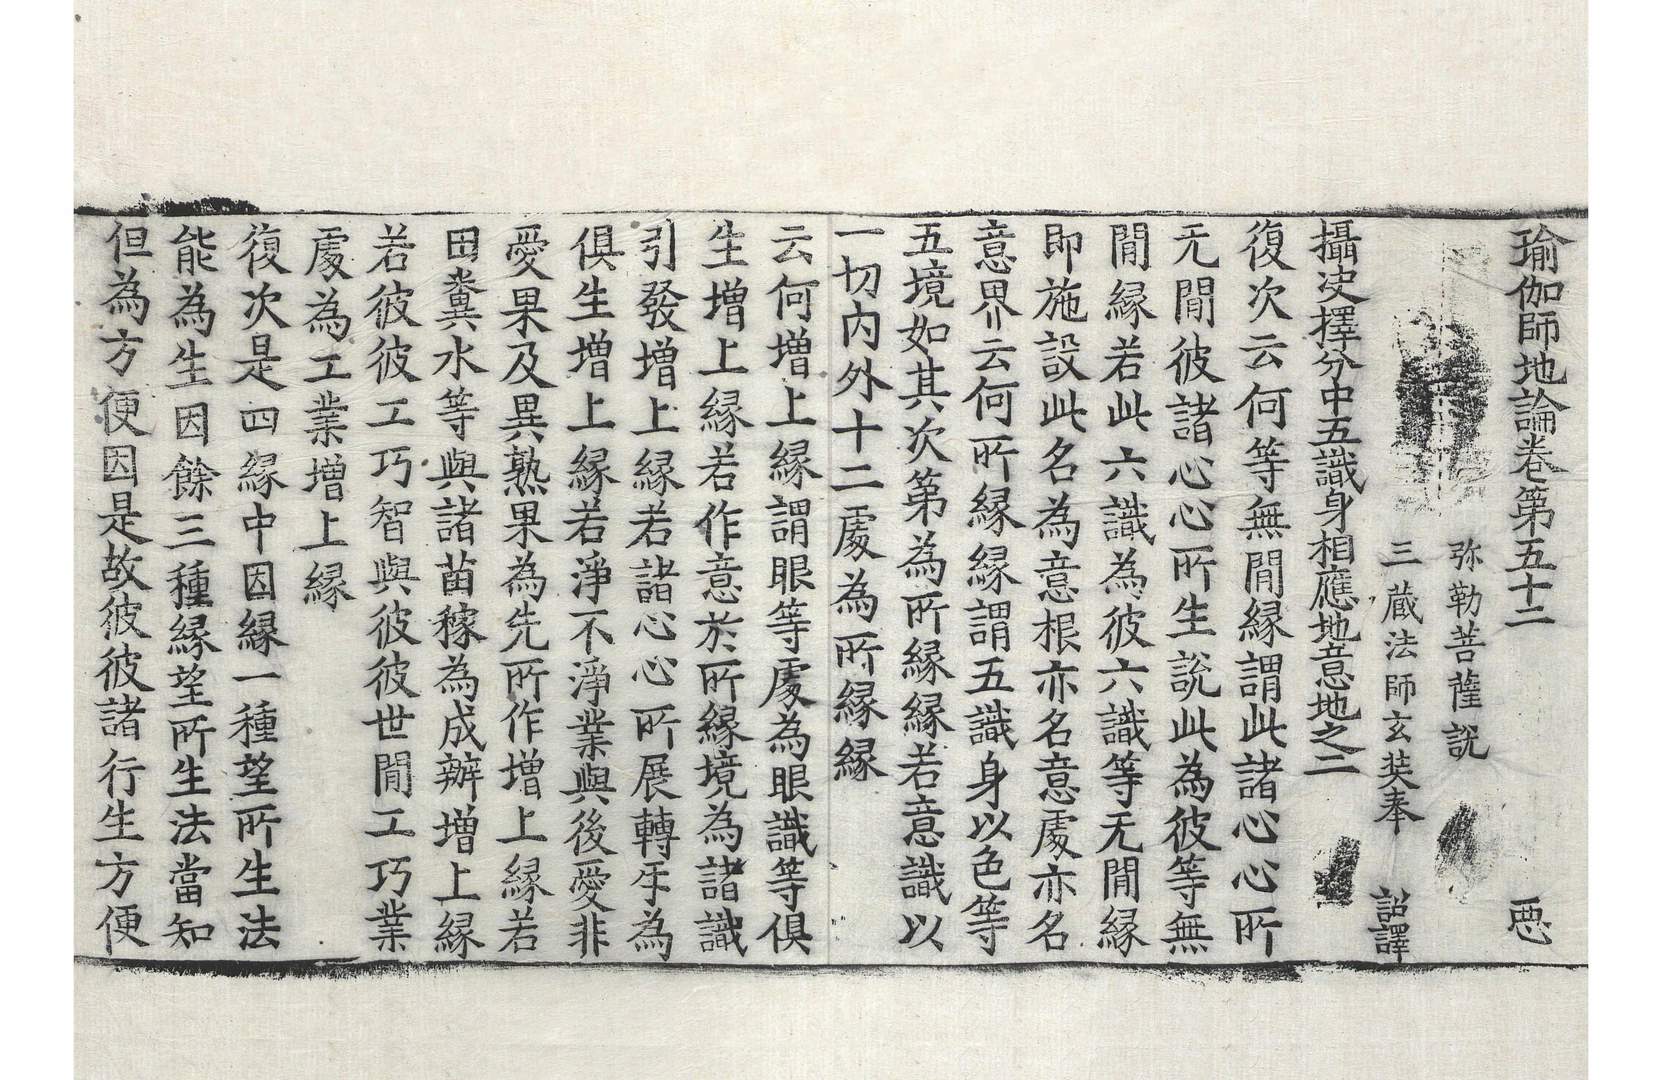 瑜伽師地論卷第五十二　惡
弥勒菩薩說
三藏法師玄奘奉　詔譯
攝決擇分中五識身相應地意地之二
復次云何等無間緣謂此諸心心所
无間彼諸心心所生說此為彼等無
間緣若此六識為彼六識等无間緣
即施設此名為意根亦名意處亦名
意界云何所緣緣謂五識身以色等
五境如其次第為所緣緣若意識以
一切內外十二處為所緣緣
云何增上緣謂眼等處為眼識等俱
生增上緣若作意於所緣境為諸識
引發增上緣若諸心心所展轉乎為
俱生增上緣若淨不淨業與後愛非
愛果及異熟果為先所作增上緣若
田糞水等與諸苗稼為成辦增上緣
若彼彼工巧智與彼彼世間工巧業
處為工業增上緣
復次是四緣中因緣一種望所生法
能為生因餘三種緣望所生法當知
但為方便因是故彼彼諸行生方便